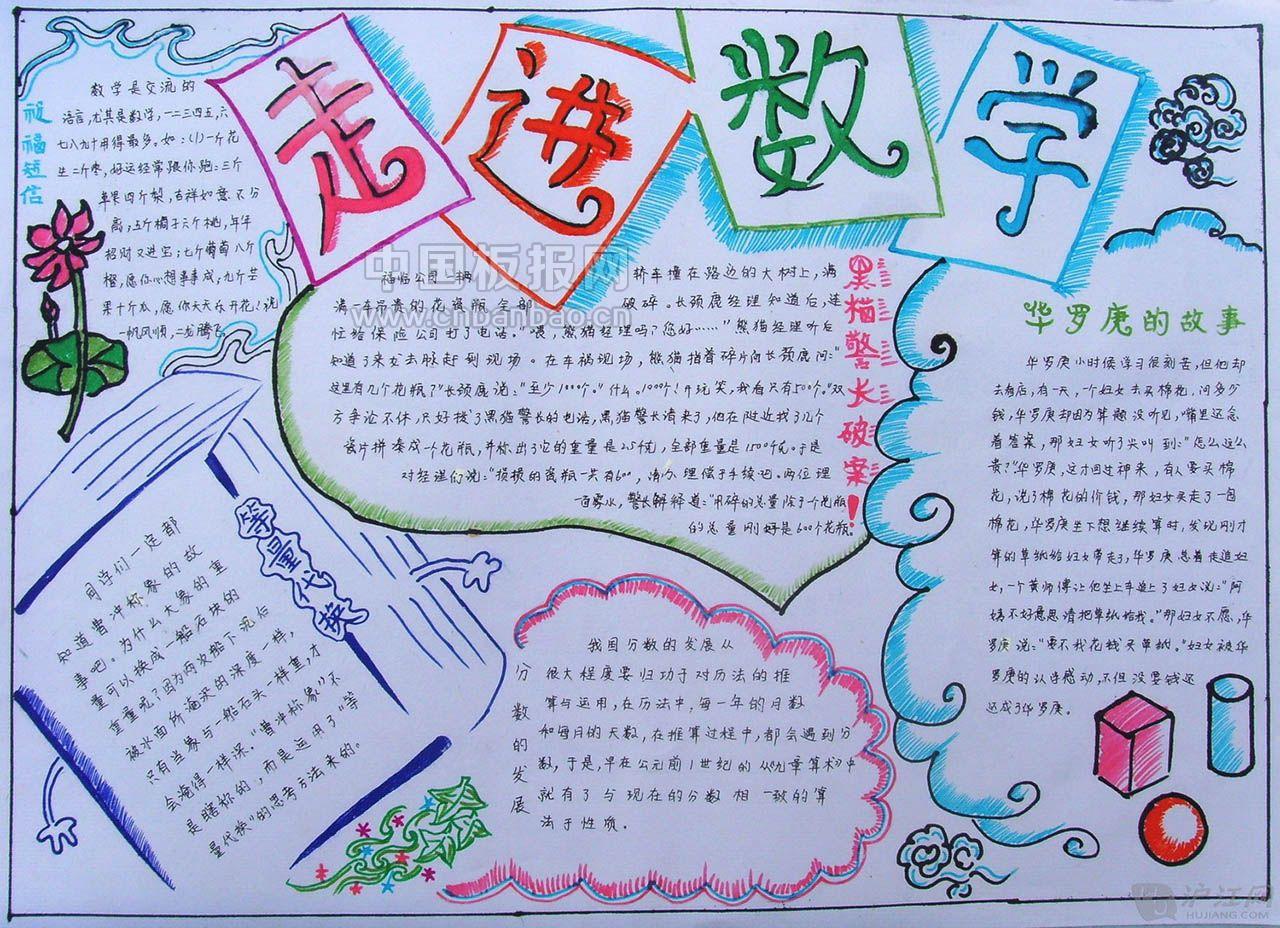 走进数学
祝福短信
数学是交流的
语言,尤其是数学,一二三四五,六
七八九十用得最多,如:(1)一斤花
生二斤枣,好运经常跟你跑;三斤
苹果四斤梨,吉祥如意不分
离;五斤橘子六斤桃,年年
招财又进宝;七斤葡萄八斤
橙,愿你心想事事成,九斤芒
果十斤瓜,愿你天天乐开花!祝
一帆风顺,二龙腾飞
中国板报网
www.chbanbao.cn
黑猫警长破案!
福临公司一辆 轿车撞在路边的大树上,满
满一车昂贵的花瓶 全部 破碎。长颈鹿经理知道后,连
忙给保险公司打了电话。"喂,熊猫经理吗?您好……"熊猫经理听后
知道了来龙去脉赶到现场。在车祸现场,熊猫指着碎片问长颈鹿:"
这里有几个花瓶?"长颈鹿说:"至少1000个。"什么。1000个!开玩笑,我看只有500个。"双
方争论不休,只好找了黑猫警长的电话,黑猫警长请来了,他在附近找了几个
瓷片拼凑成一个花瓶,并称出了它的重量是2.5千克,全部重量是1500千克。于是
对经理们说:"损损的瓷瓶一共有600,请办理偿于手续吧。两位理
一百雾水,警长解释道:"用碎的总量除于一个花瓶
的总量刚好是600个花瓶!
华罗庚的故事
华罗庚小时候学习很刻苦,但他却
去看店,有一天,一个妇女去买棉花,问多少
钱,华罗庚却因为算题没听见,嘴里还念
着答案,那妇女听了尖叫到:"怎么这么
贵?"华罗庚,这才回过神来,有人要买棉
花,说了棉花的价钱,那妇女买走了一包
棉花,华罗庚坐下想继续算时,发现刚才
算的草纸给妇女带走了,华罗庚急着走追妇
女,一个黄师傅让他坐上车追上了妇女说:"阿
姨不好意思请把草纸给我。"那妇女不愿,华
罗庚说:"要不我花钱买草纸。"妇女被华
罗庚的认学感动,不但没要钱还
还成了华罗庚。
等量代换
同学们一定都
知道曹冲称象的故
事吧。为什么大象的重
量可以换成一船石块的
重量呢?因为两次船下沉后
被水面所淹没的深度一样,
只有当象与一船石头一样重,才
会淹得一样深。"曹冲称象"不
是瞎称的,而是运用了"等
量代换"的思考方法来的。
分数的发展
我国分数的发展从
很大程度要归功于对历法的推
算与运用,在历法中,每一年的月数
和每月的天数,在推算过程中,都会遇到分
数,于是,早在公元前1世纪的从《九章算术》中
就有了与现在的分数相一致的算
法于性质。
沪江网
HUJIANG.COM